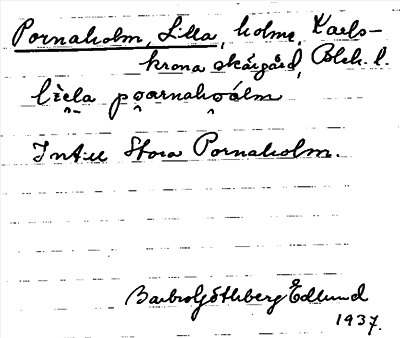 Pornaholm, Lilla, holme, Karls-
krona skärgård, Blek. l.
lìela poornahoólm
Intill Stora Pornaholm.
Barbro Göthberg Edlund
1937.